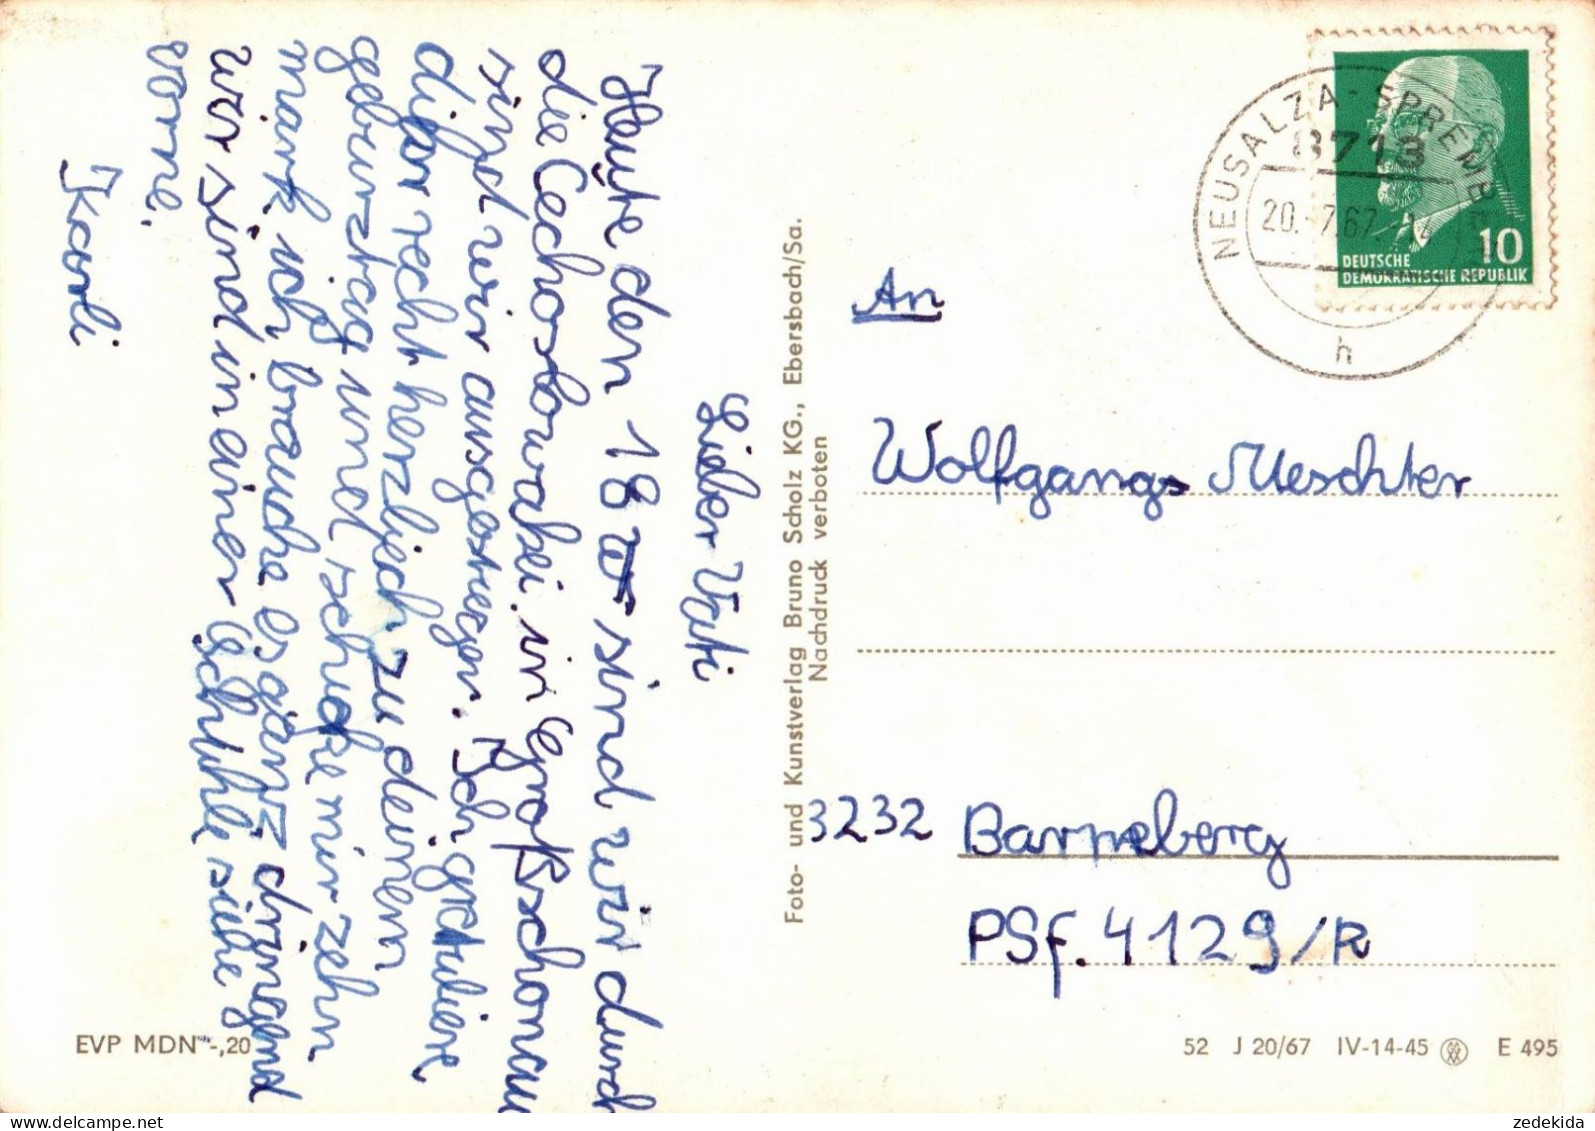 Lieber Vati
Heute den 18 sind wir durch
die Cechoslowakei in Großschönau
sind wir ausgestiegen. Ich gratuliere
dir recht herzlich zu deinen
geburztag und schicke mir zehn
mark ich brauche es ganz dringend
wir sind in einer Schuhle siehe
vorne.
Karli
EVP MDN -,20
Foto- und Kunstverlag Bruno Scholz KG., Ebersbach/Sa.
Nachdruck verboten
NEUSALZA-SPREMB
8713
20.-7.67.
h
10
DEUTSCHE
DEMOKRATISCHE REPUBLIK
An
Wolfgangs Meschter
3232 Barneberg
PSf. 4129/R
52 J 20/67 IV-14-45 E 495
zedekida